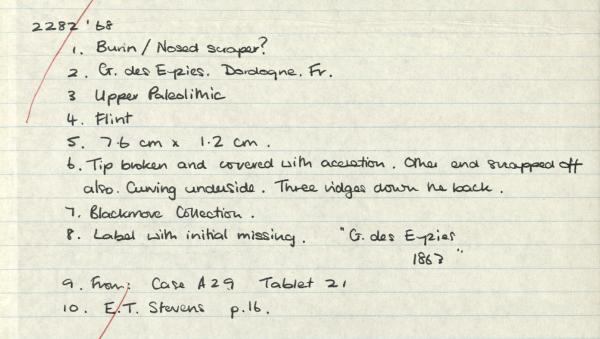 2282 '68
1. Burin / Nosed scraper?
2. G. des Eyzies. Dordogne. Fr.
3 Upper Paleolithic
4. Flint
5. 7.6 cm x 1.2 cm.
6. Tip broken and covered with accretion. Other end snapped off
also. Curving underside. Three ridges down the back.
7. Blackmore Collection.
8. Label with initial missing. "G. des Eyzies
1863"
9. From: Case A29 Tablet 21
10. E.T. Stevens p.16.